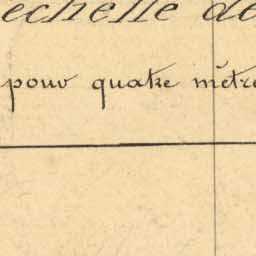 echelle de
pour quatre mètre